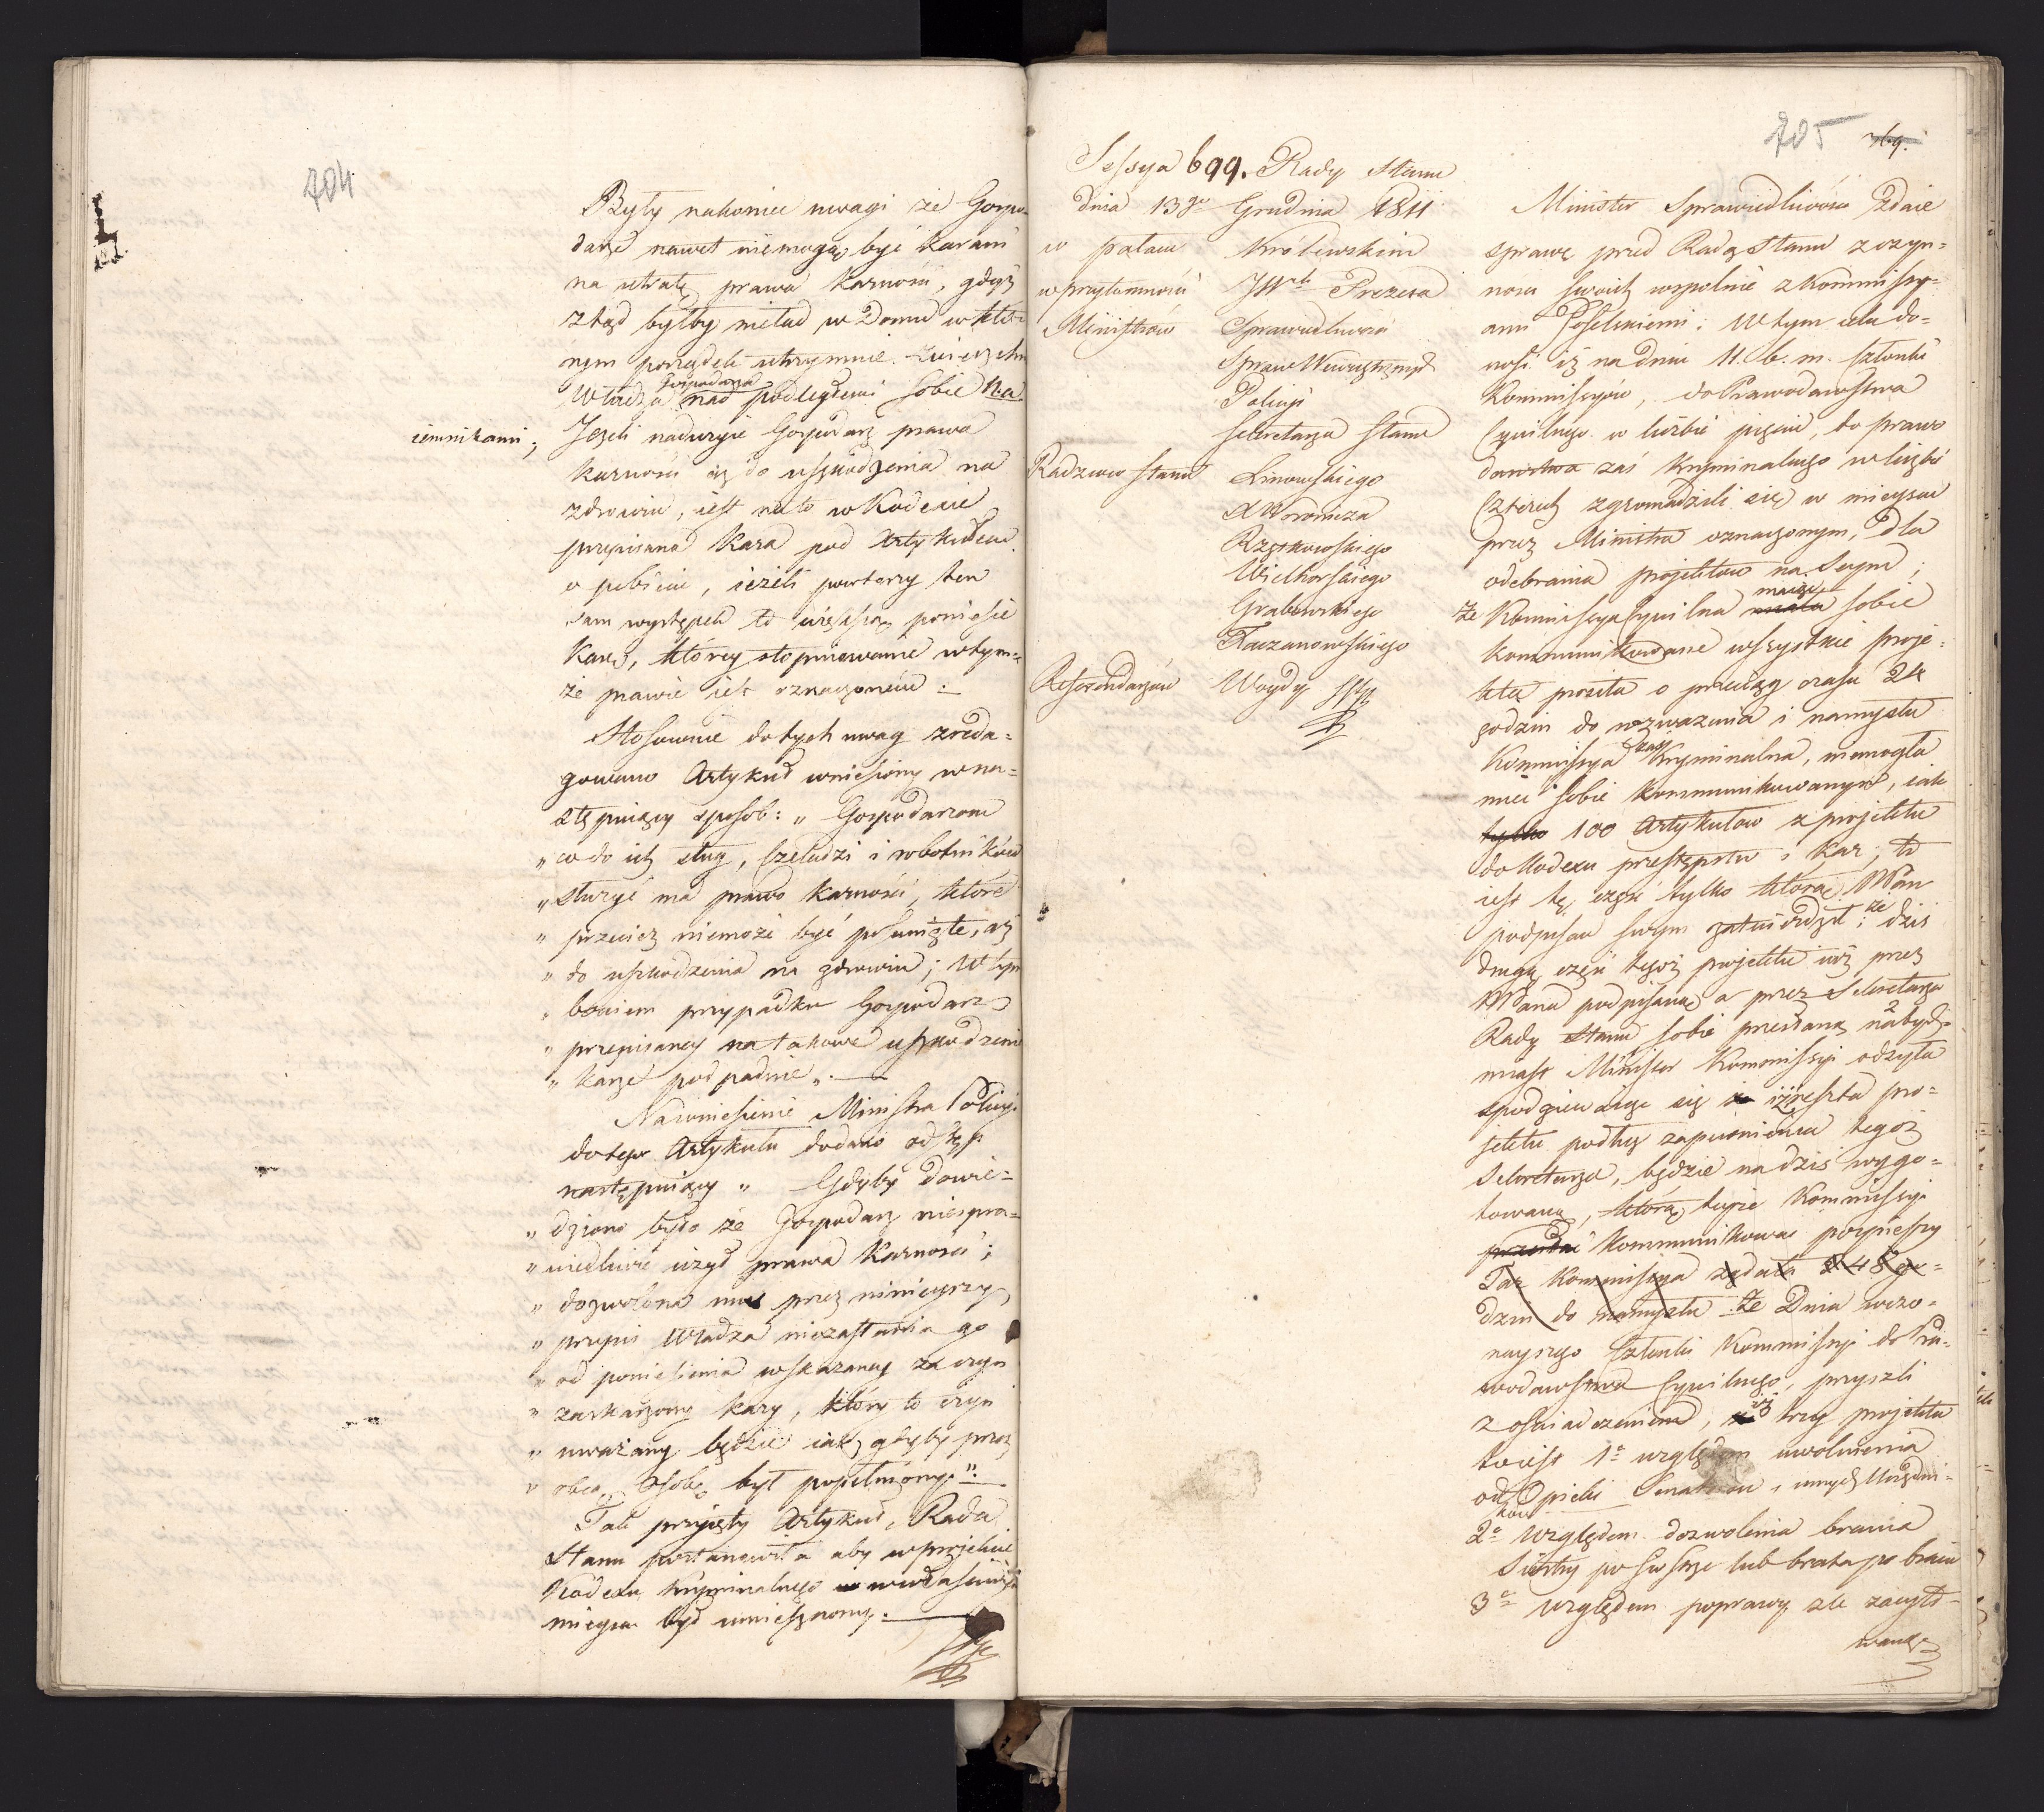 704
Były nakoniec uwagi że Gospo-
darze nawet niemogą być karani
na utratę prawa karności, gdyż
ztąd byłby nieład w Domu w któ-
rym porządek utrzymuie zwierzchn
Władza nad podległemi sobie Na
Gospodarza
iemnikami;
Jeżeli nadużyie Gospodarz prawa
karności aż do uszkodzenia na
zdrowiu, iest na to w Kodexie
przepisana kara pod Artykułem
o pobicie, ieżeli powtorzy ten
sam występek to większą poniesie
karę, którey stopniowanie w tym-
że prawie iest oznaczonem:
Stosownie do tych uwag zreda-
gowano Artykuł wniesiony w na-
stępuiący sposób: „ Gospodarzom
„ co do ich sług, Czeladzi i robotników
„ służyć ma prawo karności, które
„ przecież niemoże być posunięte, aż
„ do uszkodzenia na zdrowiu; W tym
„ bowiem przypadku Gospodarz
„ przepisaney na takowe uszkodzenie
„ karze podpadnie „.
Na wniesienie Ministra Policyi
do tego Artykułu dodano odstęp
następuiący „ Gdyby dowie-
„ dziono było że Gospodarz niespra-
„ wiedliwie użył prawa karności;
„ dozwolona mu przez ninieyszy
„ przepis Władza niezasłania go
„ od poniesienia wskazaney za czyn
„ zaskarżony kary, który to czyn
„ uważany będzie iak gdyby przez
„ obcą osobę był popełniony".
Tak przyięty Artykuł, Rada
Stanu postanowiła aby w projekcie
Kodexu kryminalnego w właściwym
mieyscu był umieszczony.
705 369.
Sessya 699. Rady Stanu
dnia 13go Grudnia 1811
w pałacu Królewskim
w przytomności JWgo Prezesa
Ministrów Sprawiedliwości
Spraw Wewnętrznych
Policyi
Sekretarza Stanu
Radzców Stanu Linowskiego
X Woronicza
Rzętkowskiego
Wielhorskiego
Grabowskiego
Kaczanowskiego
Referendarzów Woydy
Minister Sprawiedliwości zdaie
sprawę przed Radą Stanu z czyn-
ności swoich wspolnie z Kommissy-
ami Poselskiemi; W tym celu do-
nosi iż na dniu 11. b. m. Członki
Kommissyów, do Prawodawstwa
Cywilnego w liczbie pięciu, do prawo
dawstwa zaś Kryminalnego w liczbie
Czterech zgromadzili się w mieyscu
przez Ministra oznaczonym, dla
odebrania projektow na Seym;
maiąc
że Kommissya Cywilna miała sobie
kommunikowane wszystkie proje-
kta prosiła o przeciąg czasu 24
godzin do rozważenia i namysłu
zaś
Kommissya Kryminalna, niemogła
mieć sobie kommunikowanym, iak
tylko 100 Artykułow z projektu
do Kodexu przestępstw i kar, to
iest tę część tylko którą N Pan
podpisem swym zatwierdził; że dziś
drugą część tegoż projektu iuż przez
N Pana podpisaną a przez Sekretarza
Rady Stanu sobie przesłaną natych-
miast Minister Kommissyi odsyła
spodziewaiąc się iż reszta pro-
jektu podług zapewnienia tegoż
Sekretarza, będzie na dziś wygo-
towaną, którą teyże Kommissyi
przesłać kommunikować pospieszy
Taż Kommissya żądała 48 go-
dzin do namysłu Że Dnia wczo-
rayszego Członki Kommissyi do Pra-
wodawstwa Cywilnego, przyszli
z oświadczeniem, iż trzy projekta
to iest 1o względem uwolnienia
od Opieki Senatorów, innych Urzędni-
ków
2o Względem dozwolenia brania
Siostry po Siostrze lub brata po bracie
3o względem poprawy źle zacyto-
waney